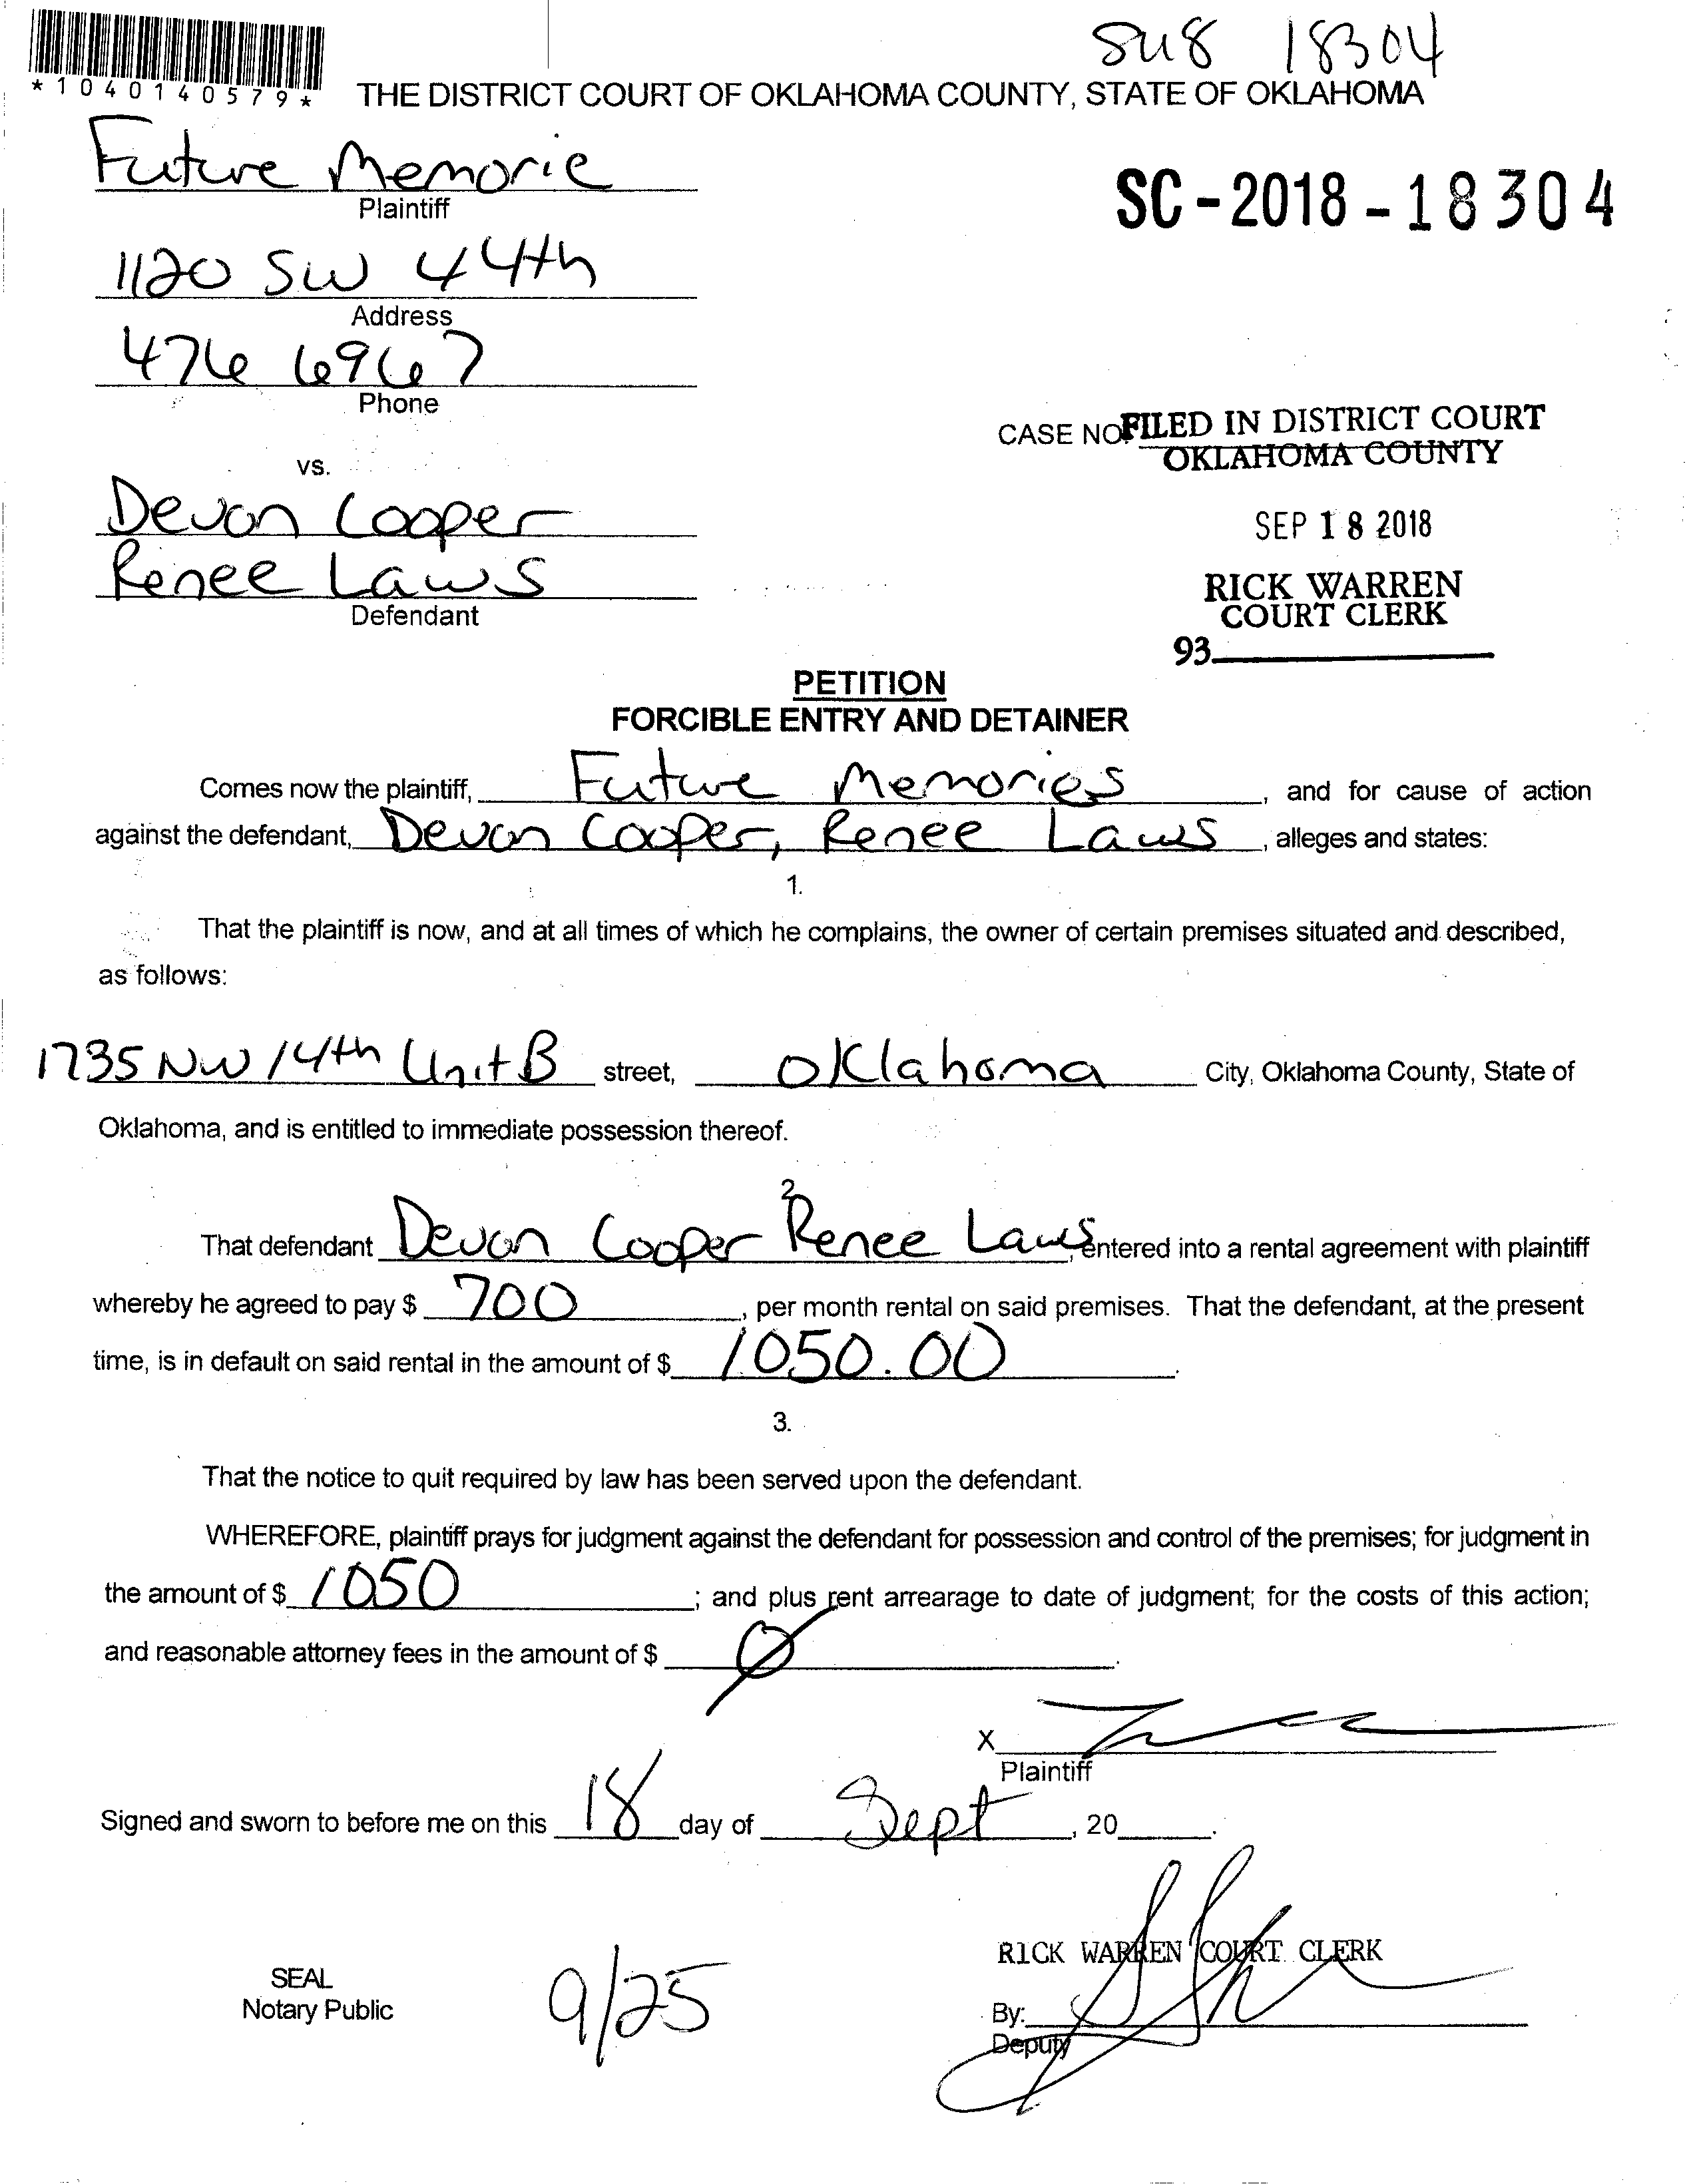 su8 18304
*1040140579*
THE DISTRICT COURT OF OKLAHOMA COUNTY, STATE OF OKLAHOMA
Future Memorie
Plaintiff
SC-2018-18304
1120 SW 44th
Address
476 6967
Phone
CASE NO. FILED IN DISTRICT COURT
OKLAHOMA COUNTY
vs.
Devon Cooper
SEP 18 2018
Renee Laws
Defendant
RICK WARREN
COURT CLERK
93
PETITION
FORCIBLE ENTRY AND DETAINER
Comes now the plaintiff, Future Memories, and for cause of action
against the defendant, Devon Cooper, Renee Laws, alleges and states:
1.
That the plaintiff is now, and at all times of which he complains, the owner of certain premises situated and described,
as follows:
1735 NW 14th Unit B street, Oklahoma City, Oklahoma County, State of
Oklahoma, and is entitled to immediate possession thereof.
2.
That defendant Devon Cooper Renee Laws, entered into a rental agreement with plaintiff
whereby he agreed to pay $ 700, per month rental on said premises. That the defendant, at the present
time, is in default on said rental in the amount of $ 1050.00.
3.
That the notice to quit required by law has been served upon the defendant.
WHEREFORE, plaintiff prays for judgment against the defendant for possession and control of the premises; for judgment in
the amount of $ 1050; and plus rent arrearage to date of judgment; for the costs of this action;
and reasonable attorney fees in the amount of $ 0.
X
Plaintiff
Signed and sworn to before me on this 18 day of Sept, 20.
RICK WARREN COURT CLERK
SEAL
Notary Public
9/25
By:
Deputy